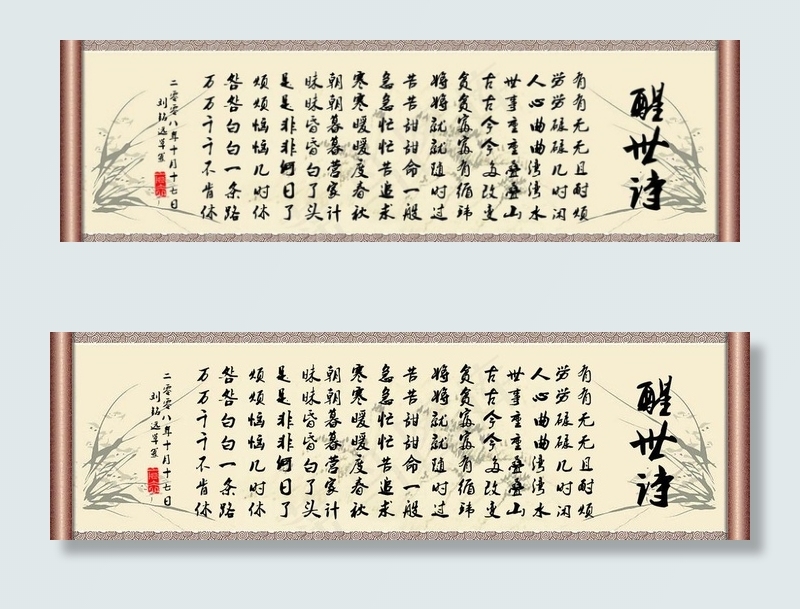 醒世诗
有有无无且耐烦
劳劳碌碌几时闲
人心曲曲湾湾水
世事重重叠叠山
古古今今多改变
贫贫富富有循环
将将就就随时过
苦苦甜甜命一般
急急忙忙苦追求
寒寒暖暖度春秋
朝朝暮暮营家计
昧昧昏昏白了头
是是非非何日了
烦烦恼恼几时休
咎咎白白一条路
万万千千不肯休
二零零八年十月十七日
醒世诗
有有无无且耐烦
劳劳碌碌几时闲
人心曲曲湾湾水
世事重重叠叠山
古古今今多改变
贫贫富富有循环
将将就就随时过
苦苦甜甜命一般
急急忙忙苦追求
寒寒暖暖度春秋
朝朝暮暮营家计
昧昧昏昏白了头
是是非非何日了
烦烦恼恼几时休
咎咎白白一条路
万万千千不肯休
二零零八年十月十七日